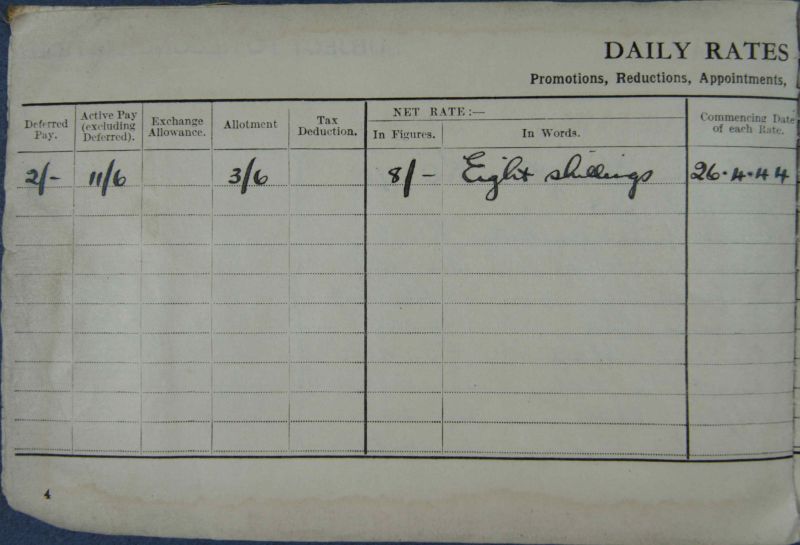 DAILY RATES
Promotions, Reductions, Appointments,
Deferred Pay.
Active Pay (excluding Deferred).
Exchange Allowance.
Allotment
Tax Deduction.
NET RATE:—
In Figures.
In Words.
Commencing Date of each Rate.
2/- 11/6 3/6 8/- Eight shillings 26.4.44
4